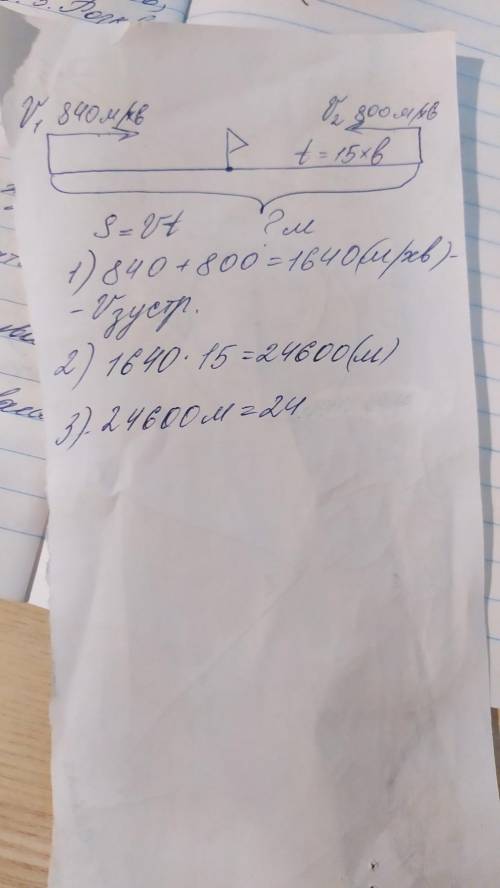 V₁ 840 м/хв V₂ 800 м/хв
t = 15 хв
S = Vt ? м
1) 840 + 800 = 1640 (м/хв) -
- Vзустр.
2) 1640 · 15 = 24600 (м)
3). 24600 м = 24